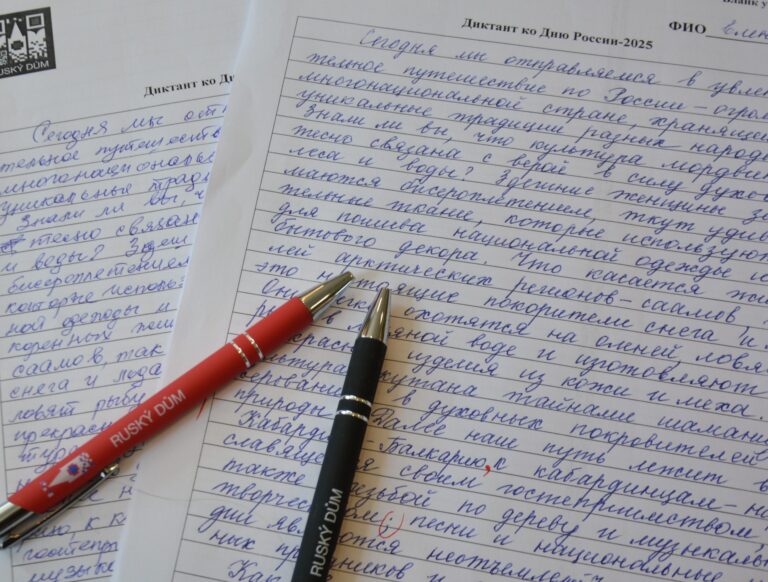 RUSKÝ DŮM
Диктант ко Дн
Сегодня мы отп
тельное путешеств
многонациональ
уникальные трад
Знали ли вы, ч
тесно связан
и воды? Здеш
бисероплетением
которые использ
ной одежды и
коренных
саамов, так
снега и льда
ловят рыбу
прекрасн
тур
музык
Бланк у
ФИО Елен
Диктант ко Дню России-2025
Сегодня мы отправляемся в увлек
тельное путешествие по России – огром
многонациональной стране, хранящей
уникальные традиции разных народов
Знали ли вы, что культура мордви
тесно связана с верой в силу духов
леса и воды? Здешние женщины за
маются бисероплетением, ткут удив
тельные ткани, которые используют
для пошива национальной одежды и
бытового декора. Что касается жит
лей арктических регионов – саамов
это настоящие покорители снега и л
Они охотятся на оленей, ловят
ры льняной воде и изготовляют
красн изделия из кожи и меха.
льтура окутана тайнами шамани
серовани в духовных покровителей
природы. Далее наш путь лежит в
Кабардино-Балкарию, к кабардинцам – на
славящемся своим гостеприимством,
также резьбой по дереву и музыкаль
творчеством: песни и национальные
ции являются неотъемлем
ных праздников и
Как
RUSKÝ DŮM
RUSKÝ DŮM